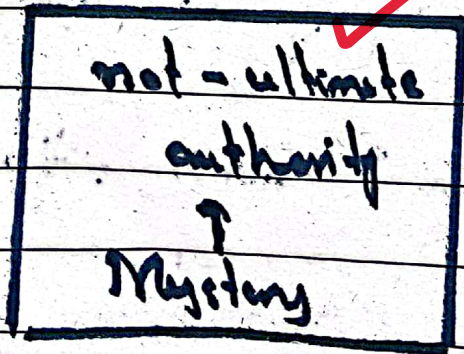 not - ultimate
authority
↑
Mystery